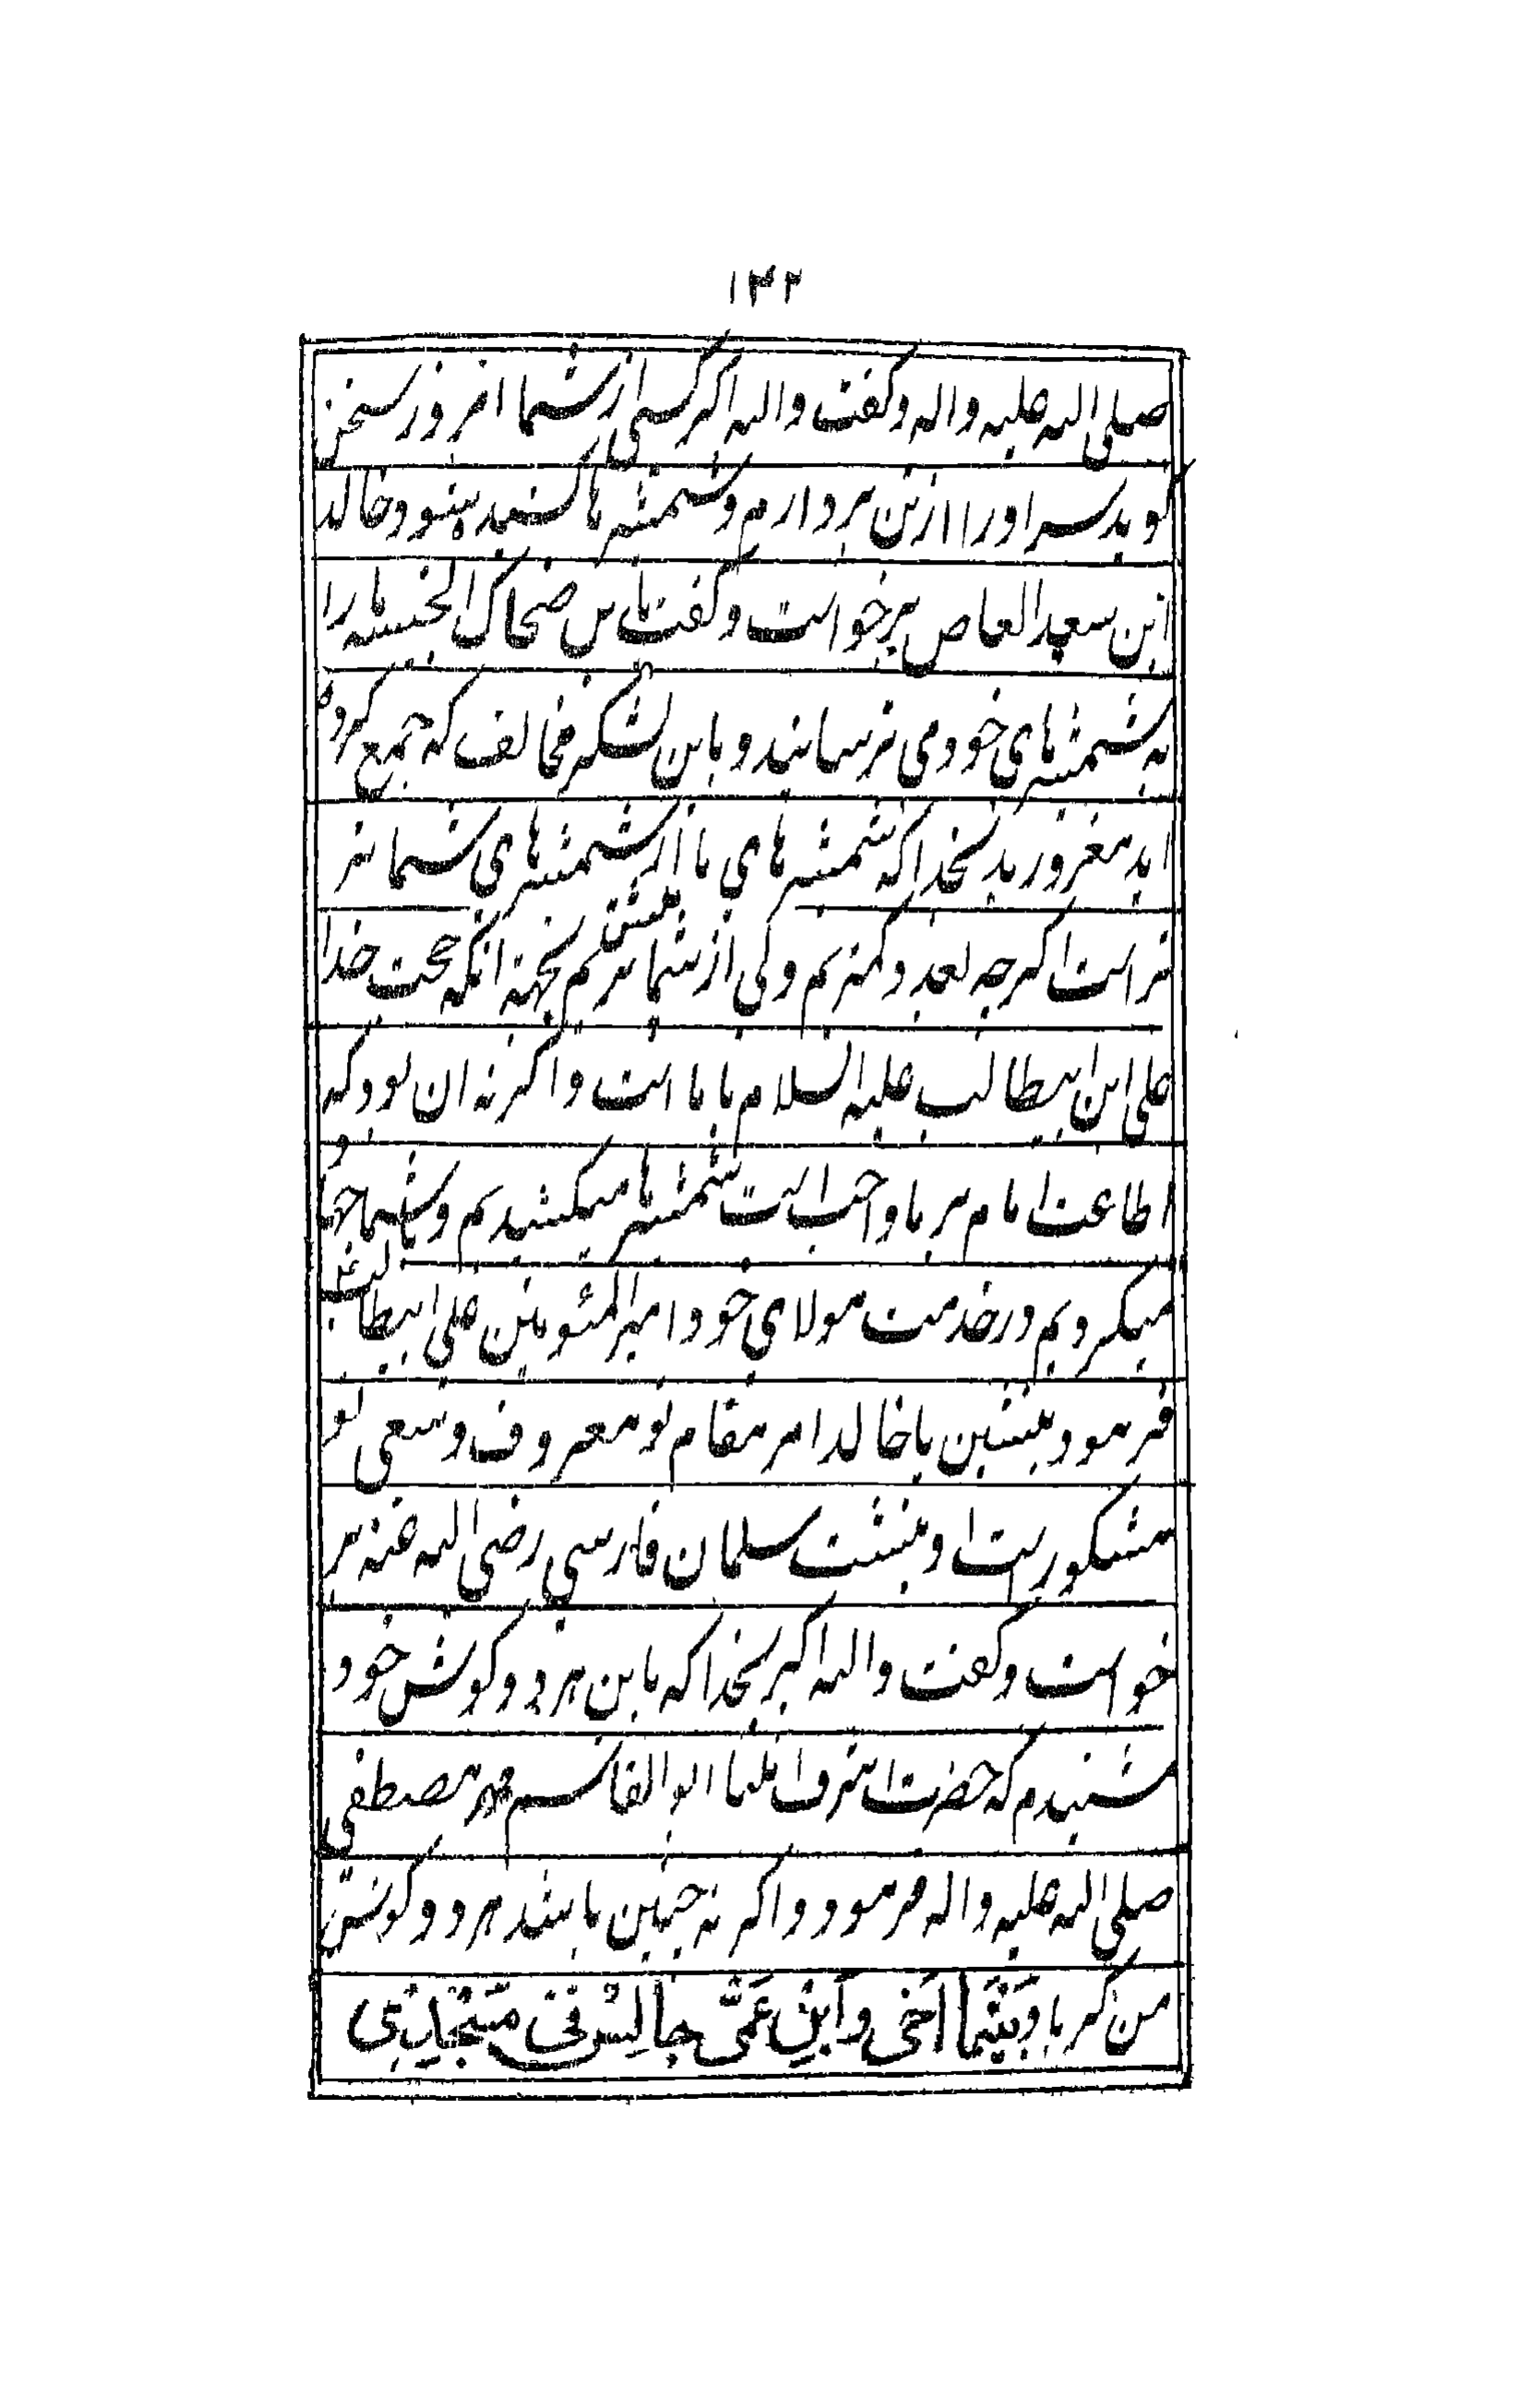 ۱۳۲
صلی الله علیه واله وکفت والله اکر کسی از شما امروز سخن
کوید سر اورا از تن بردارم وشمشیرها کشیده بنمود خالد
ابن سعید العاص برخواست وکفت یابن ضحاک الحبشیه مارا
به شمشیرهای خود می ترسانید و باین لشکر مخالف که جمع کرده
اید مغرورید بخدا که شمشیرهای ما از شمشیرهای شما تیز
تر است اکرچه بعدد کمتریم ولی از شما بیشتریم بجهة انکه حجت خدا
علی ابن ابیطالب علیه السلام با ما است واکر نه ان بود که
اطاعت امام بر ما واجب است شمشیرها میکشیدیم و باشما جهاد
میکردیم در خدمت مولای خود امیرالمئومنین علی ابیطالب ع
فرمود بنشین یاخالد امر مقام تو معروف وسعی تو
مشکور است او بنشست سلمان فارسی رضی الله عنه بر
خواست وکفت والله اکبر بخدا که باین هر دو کوش خود
شنیدم که حضرت اشرف انبیا ابوالقاسم محمد مصطفی
صلی الله علیه واله فرمود واکر نه چنین باشد هر دو کوش
من کر باد بَیْنَما اَخی وَابْنِ عَمّی جالِسٌ فی مَسْجِدی